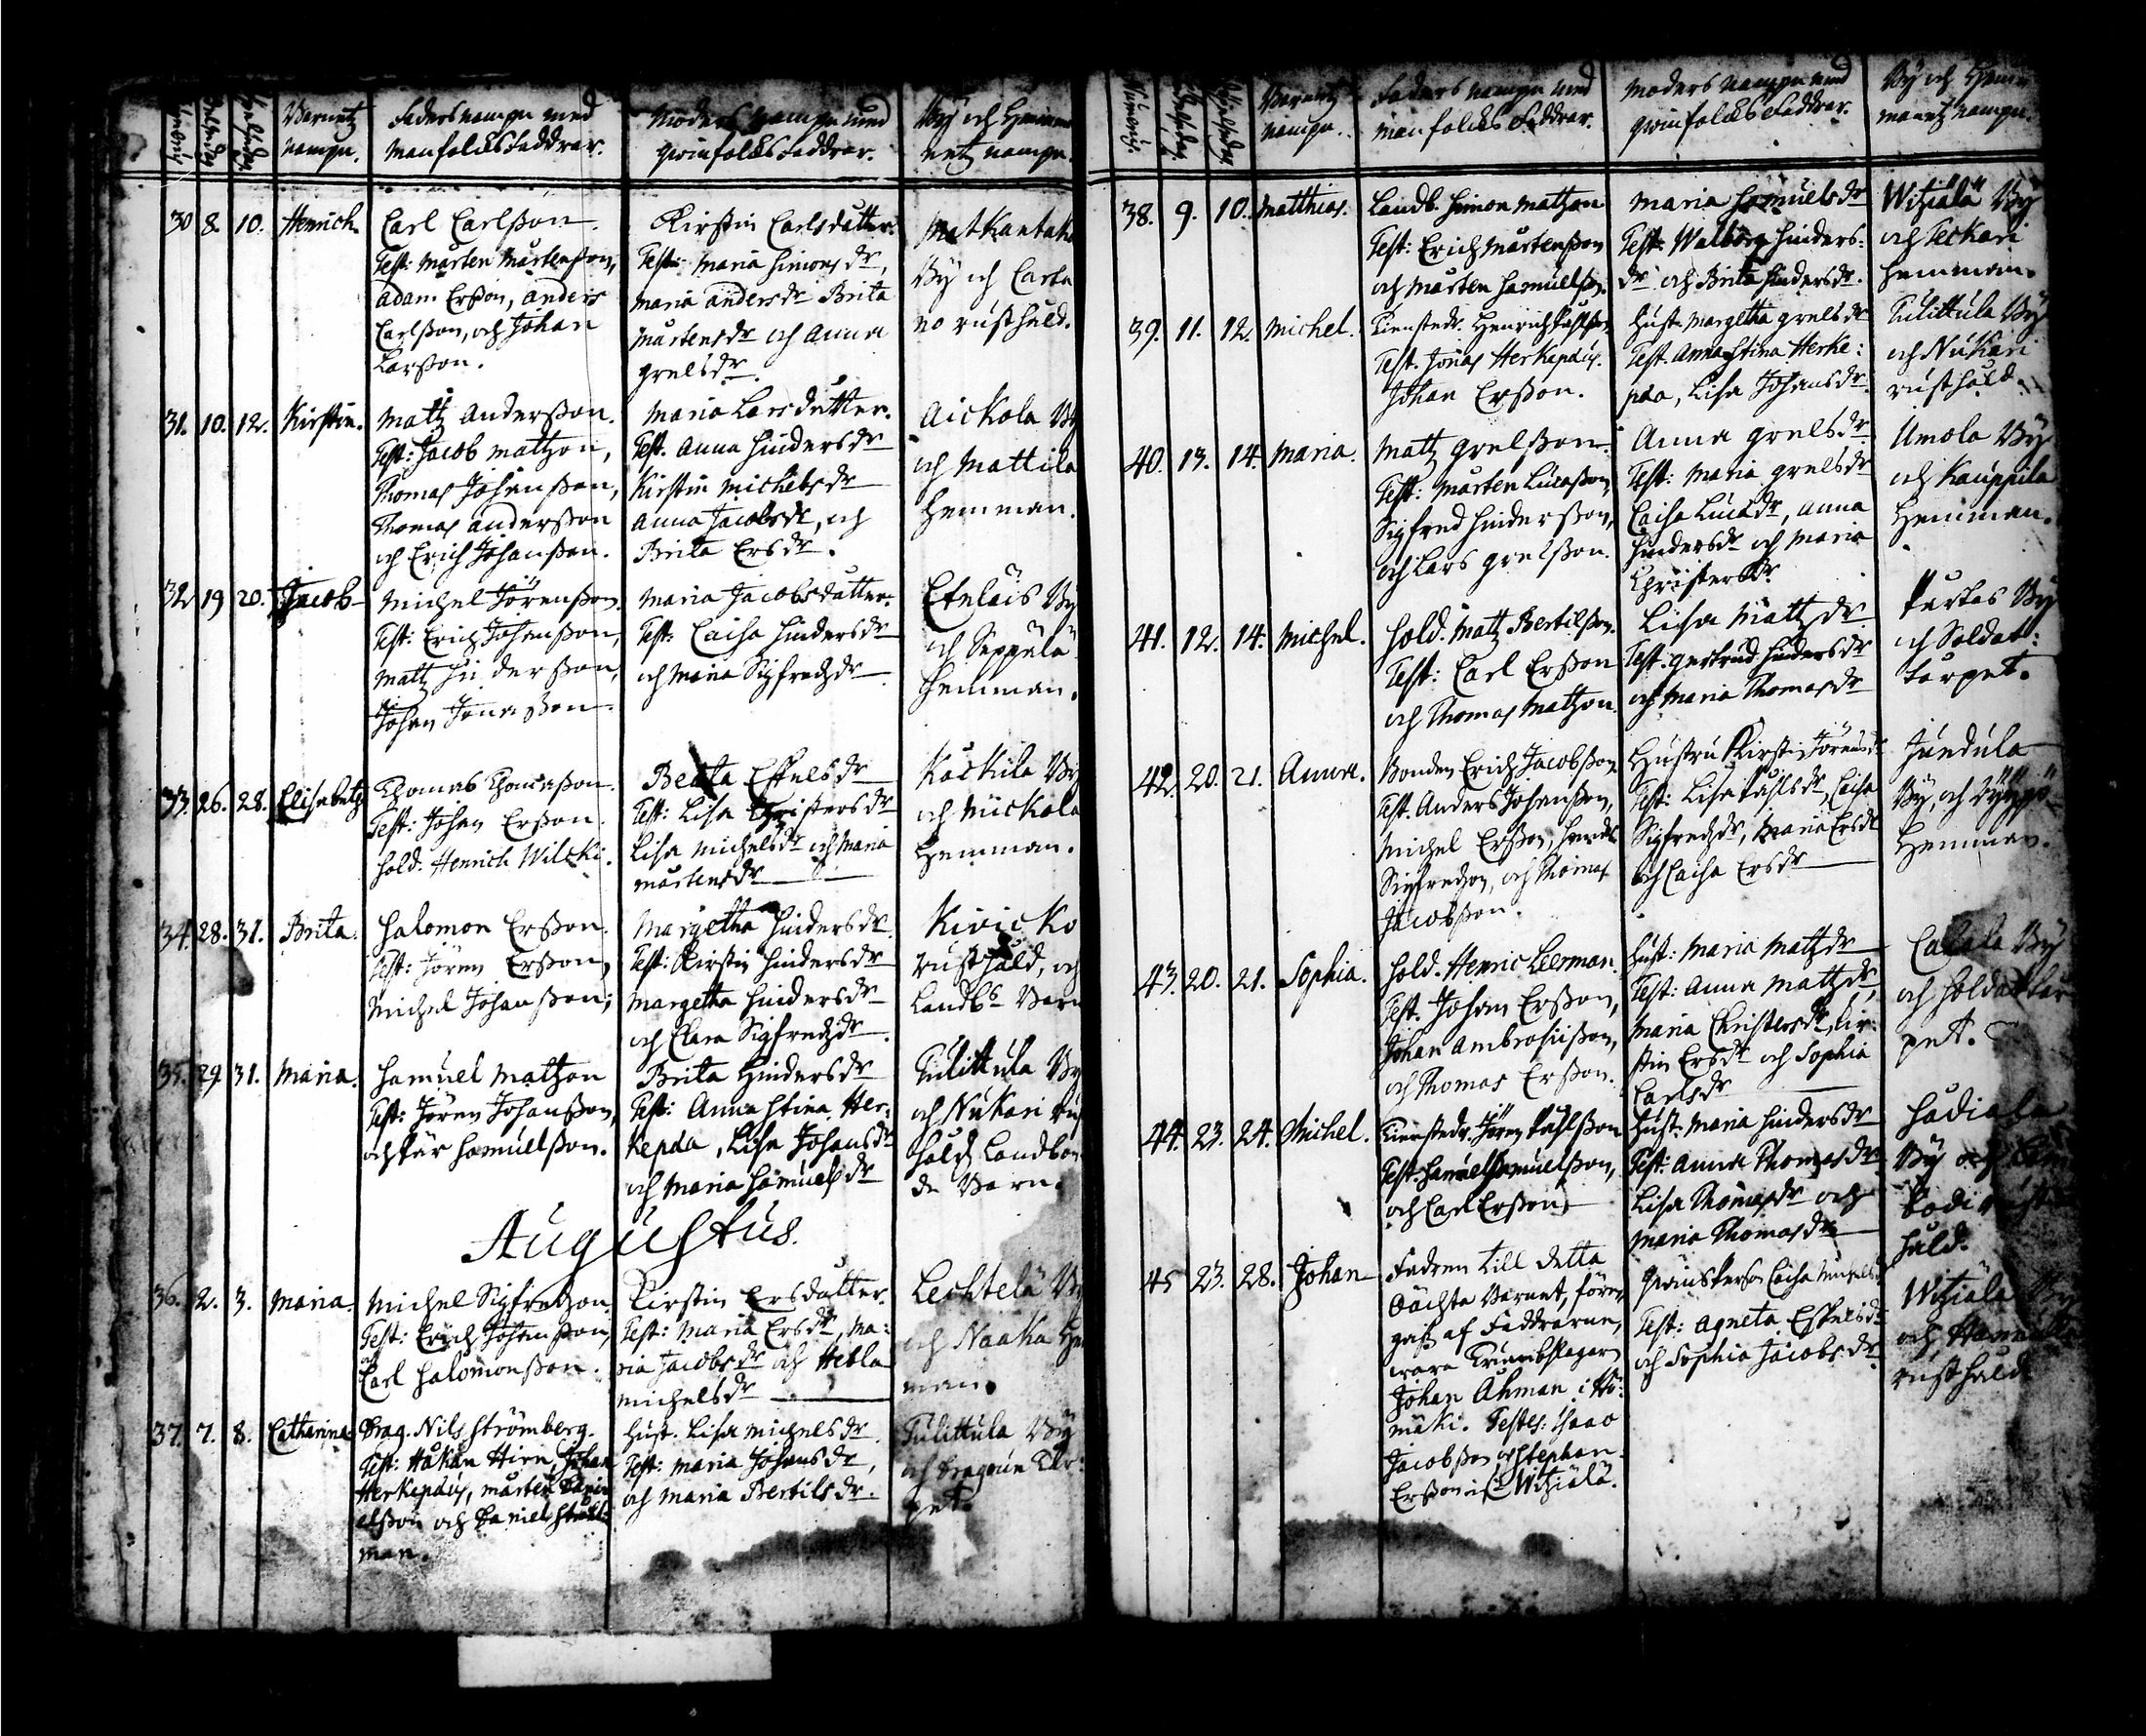 Numerus.
Födelsedag
Christendag
Barnetz
nampn.
Faders nampn med
Manfolcks Faddrar.
Moders nampn med
qwinfolcks Faddrar.
By och Hemma
netz nampn.
30 8. 10. Henrich.
Carl Carlsson.
Test: Mårten Mårtensson,
Adam Ersson, Anders
Carlsson, och Johan
Larsson.
Kirstin Carlsdatter.
Test: Maria Simonsdr,
Maria Andersdr Brita
Mårtensdr och Anna
Grelsdr.
Matkantaka
By och Carta
no rusthåld.
31. 10. 12. Kirstin.
Matz Andersson.
Test: Jacob Matzon,
Thomas Johansson,
Thomas Andersson
och Erich Johansson.
Maria Larsdutter.
Test. Anna Hindersdr
Kirstin Michelsdr
Anna Jacobsdr, och
Brita Ersdr.
Aickola By
och Mattila
Hemman.
32 19 20. Jacob
Michel Jörensson.
Test: Erich Johansson,
Matz Hindersson,
Johan Jonasson.
Maria Jacobsdatter.
Test: Caisa Hindersdr
och Maria Sigfredzdr
Eteläis By
och Seppälä
Hemman.
33. 26. 28. Elisabeth
Thomas Thomasson.
Test: Johan Ersson.
Sold. Henrich Wilcki.
Beata Eskelsdr
Test: Lisa Christersdr
Lisa Michelsdr och Maria
Mårtensdr
Kackila By
och Nickola
Hemman.
34. 28. 31. Brita.
Salomon Ersson.
Test: Jören Ersson,
Michel Johansson;
Margetha Hindersdr.
Test: Kirstin Hindersdr
Margetha Hindersdr
och Clara Sigfredzdr.
Kivicko
rusthåld, och
Landbs Barn
35. 29. 31. Maria.
Samuel Matzon
Test: Jören Johansson,
och Pär Samuelsson.
Brita Hindersdr
Test: Anna Stina Her:
kepda, Lisa Johansdr
och Maria Samuelsdr
Tulittula By
och Nukari rus
håld Landbon
de Barn.
Augustus.
36. 2. 3. Maria.
Michel Sigfredzon.
Test: Erich Johansson,
och
Carl Salomonsson.
Kirstin Ersdatter.
Test: Maria Ersdr, Ma:
ria Jacobsdr och Hebla
Michelsdr
Lechtelä By
och Naaka He
man.
37. 7. 8. Catharina
Drag. Nils Strömberg.
Test: Håkan Hirn, Johan
Herkepæus, Mårten Dani
elsson och Daniel Stråhl:
man.
Hust. Lisa Michelsdr
Test: Maria Johansdr,
och Maria Bertilsdr.
Tulittula By
och Dragoun Tår:
pet.
Numerus.
Födelsedag
Christendag
Barnetz
nampn.
Faders nampn med
manfolcks Faddrar.
Moders nampn med
qwinfolcks Faddrar.
By och Hem
manetz nampn.
38. 9. 10. Matthias.
Landb. Simon Matzon
Test: Erich Mårtensson
och Mårten Samuelsson.
Maria Samuelsdr
Test: Walborg Hinders:
dr och Brita Hindersdr.
Witziälä By
och Teckari
Hemman.
39. 11. 12. Michel.
Tienstedr. Henrich Påhlsson
Test. Jonas Herkepæus.
Johan Ersson.
Hust. Margetha Grelsdr
Test. Anna Stina Herke:
pda, Lisa Johansdr.
Tulittula By
och Nukari
rusthåld.
40. 13. 14. Maria.
Matz Grelsson.
Test: Mårten Lucasson,
Sigfred Hindersson,
och Lars Grelsson.
Anna Grelsdr
Test: Maria Grelsdr
Caisa Lucadr, Anna
Hindersdr och Maria
Christersdr.
Umola By
och Kauppila
Hemman.
41. 12. 14. Michel.
Sold. Matz Bertilsson.
Test: Carl Ersson
och Thomas Matzon.
Lisa Matzdr
Test. Gertrud Hindersdr
och Maria Thomasdr
Partas By
och Soldat:
tårpet.
42. 20. 21. Anna.
Bonden Erich Jacobsson.
Test. Anders Johansson,
Michel Ersson, Henrich
Sigfredzon, och Thomas
Jacobsson.
Hustru Kirstin Jörensdr
Test: Lisa Påhlsdr, Caisa
Sigfredzdr, Maria Ersdr
och Caisa Ersdr
Jundula
By, och
Hemman.
43. 20. 21. Sophia.
Sold. Henric Leerman.
Test. Johan Ersson,
Johan Ambrosiisson,
och Thomas Ersson.
Hust: Maria Matzdr
Test: Anna Matzdr,
Maria Christersdr, Kir:
stin Ersdr och Sophia
Carlsdr
Calala By
och Soldatstår
pet.
44. 23. 24. Michel.
Tienstedr. Jören Påhlsson
Test. Samuel Samuelsson,
och Carl Ersson
Hust: Maria Hindersdr
Test: Anna Thomasdr
Lisa Thomasdr och
Maria Thomasdr
Sadiala
By och
håld.
45 23. 28. Johan
Fadren till detta
oächta Barnet, före
gafs af Faddrarne,
wara Trumbslagaren
Johan Åhman i Hå:
mäki. Testes: Isaac
Jacobsson och Stephan
Ersson ifr Witziälä.
Qwinsperson Caisa Michelsdr
Test: Agneta Eskelsdr
och Sophia Jacobsdr.
Witziälä By
och Hannula
rusthåld